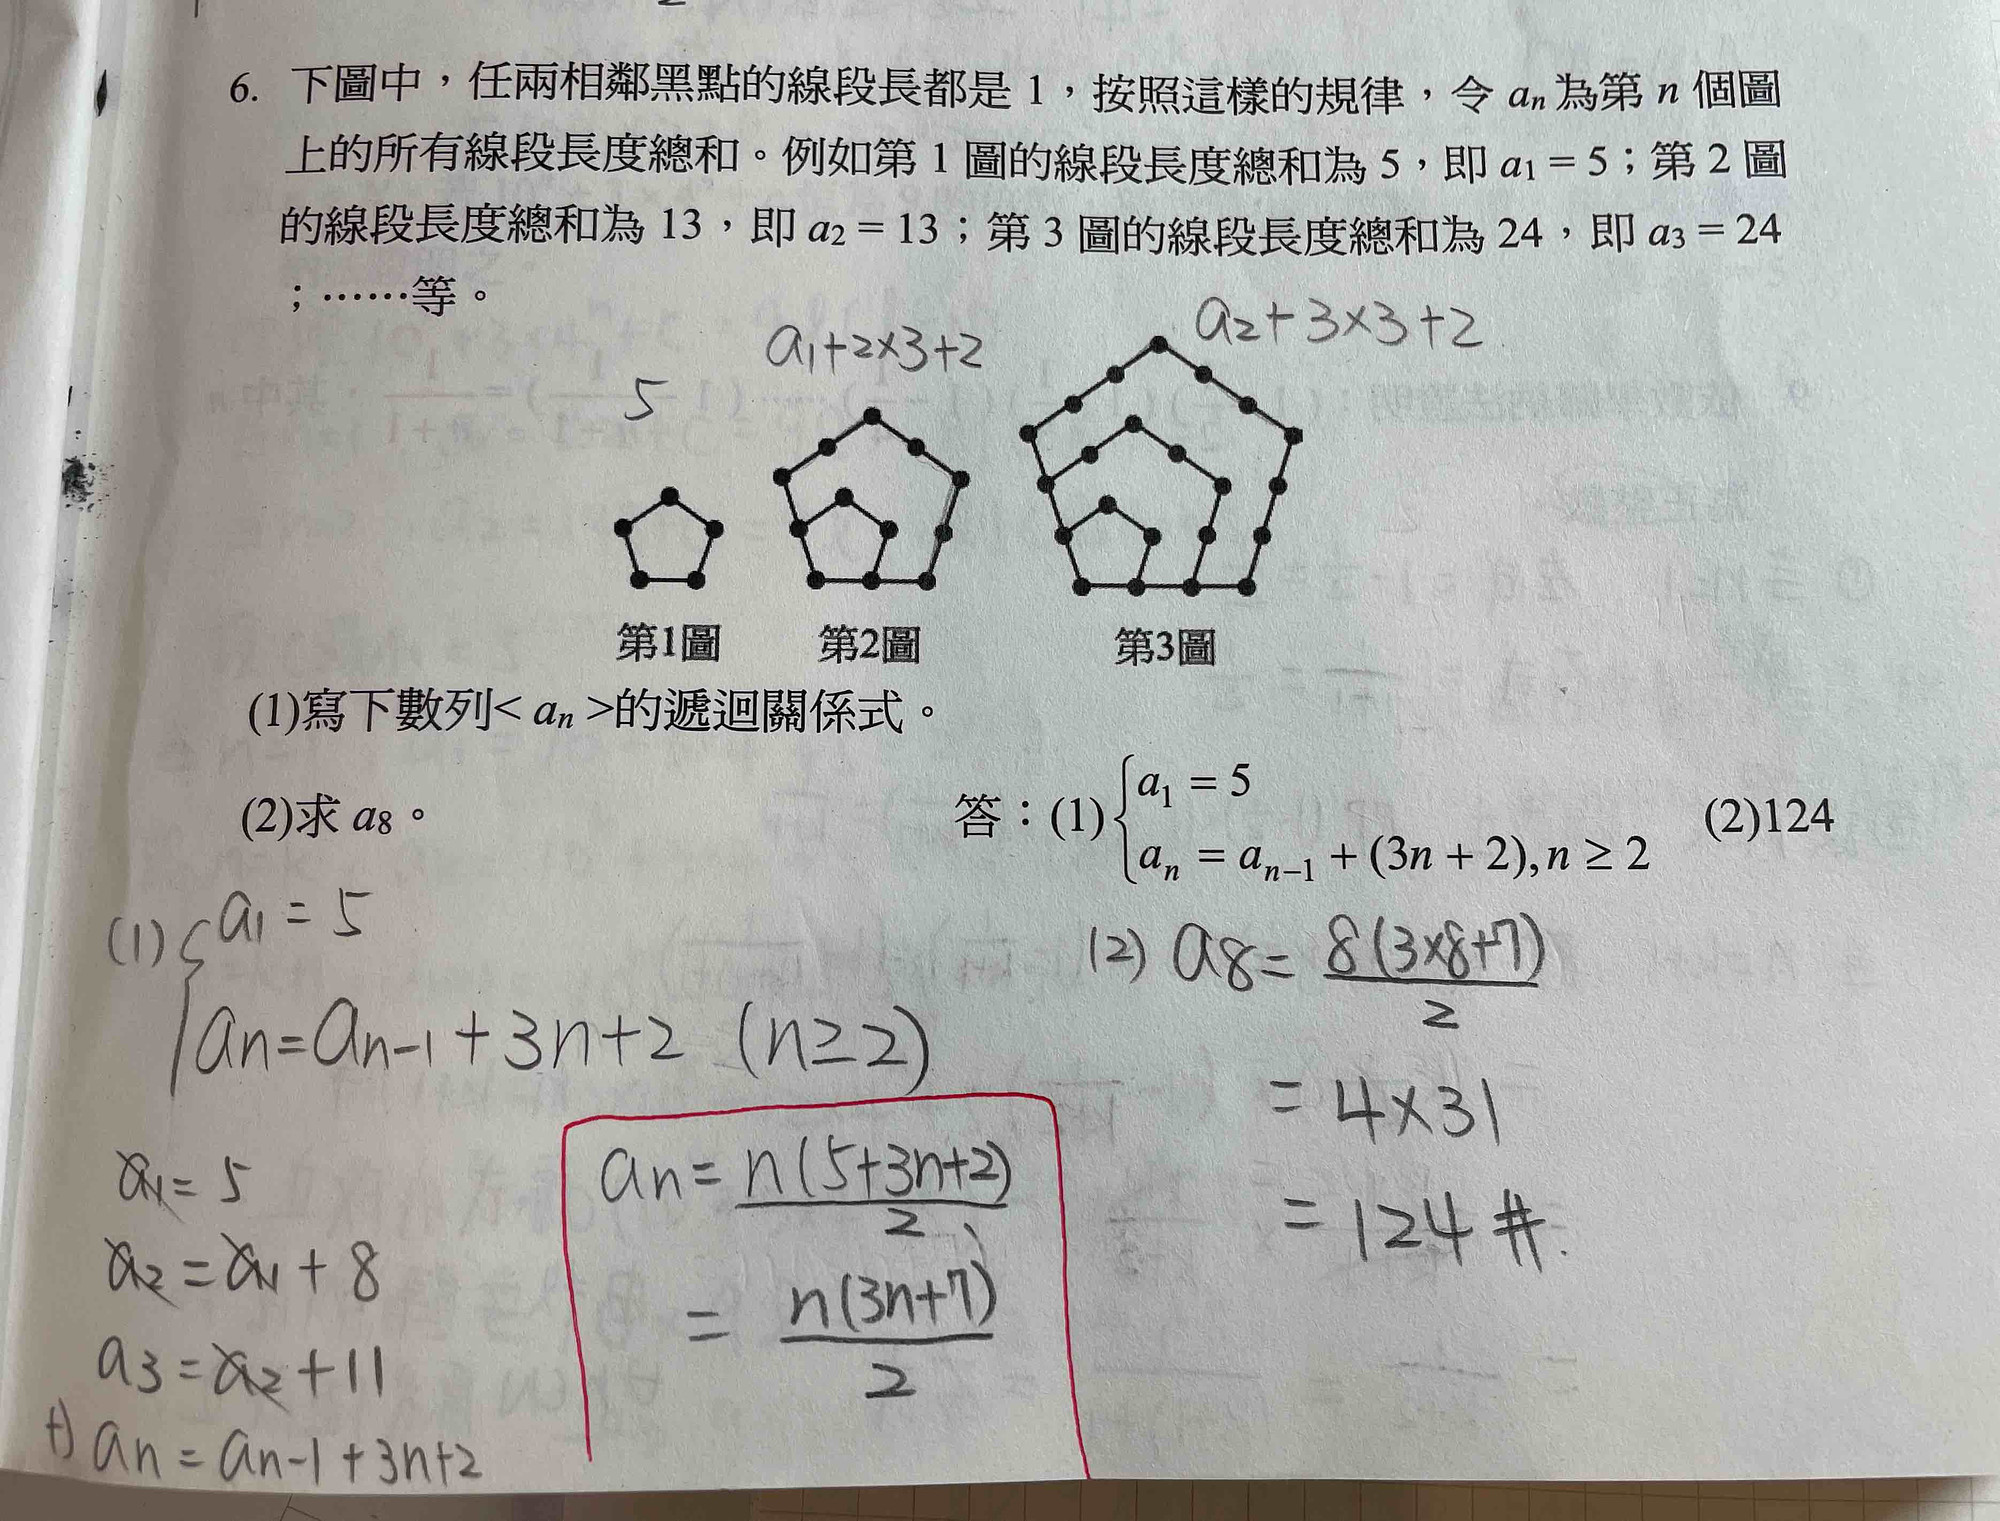 6. 下圖中，任兩相鄰黑點的線段長都是 1，按照這樣的規律，令 aₙ 為第 n 個圖
上的所有線段長度總和。例如第 1 圖的線段長度總和為 5，即 a₁ = 5；第 2 圖
的線段長度總和為 13，即 a₂ = 13；第 3 圖的線段長度總和為 24，即 a₃ = 24
；……等。
5
a₁+2×3+2
a₂+3×3+2
第1圖 第2圖 第3圖
(1)寫下數列< aₙ >的遞迴關係式。
(2)求 a₈。
答：(1) { a₁ = 5
aₙ = aₙ₋₁ + (3n + 2), n ≥ 2
(2)124
(1) { a₁ = 5
aₙ = aₙ₋₁ + 3n + 2 (n ≥ 2)
a₁ = 5
a₂ = a₁ + 8
a₃ = a₂ + 11
+) aₙ = aₙ₋₁ + 3n+2
aₙ = n(5+3n+2)/2
= n(3n+7)/2
(2) a₈ = 8(3×8+7)/2
= 4×31
= 124 #.